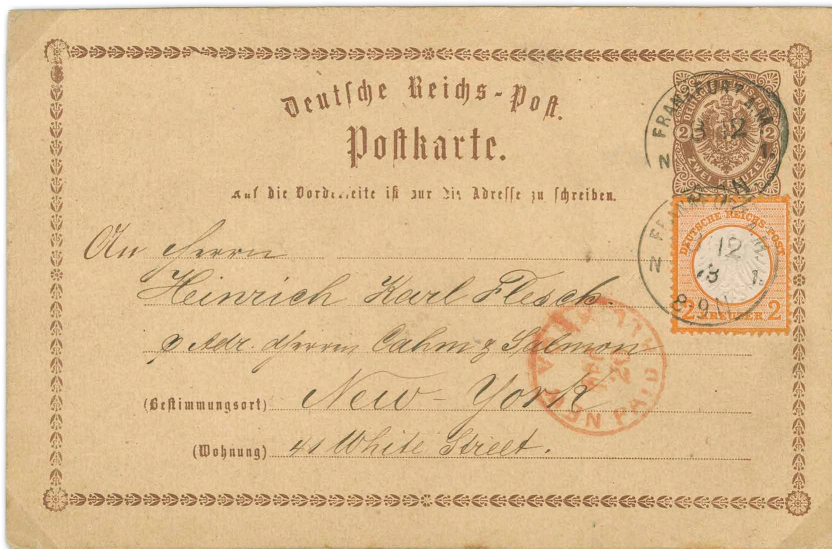 Deutsche Reichs-Post.
Postkarte.
Auf die Vorderseite ist nur die Adresse zu schreiben.
DEUTSCHE REICHS-POST
2 2
ZWEI KREUZER
FRANKFURT A.M.
12
N 1
DEUTSCHE REICHS-POST
2 KREUZER 2
12
73
N 1
8-9N
An Herrn
Heinrich Karl Flesch.
p Adr. Herren Cahn & Salmon
(Bestimmungsort) New-York
(Wohnung) 41 White Street.
NEW YORK
PAID ALL